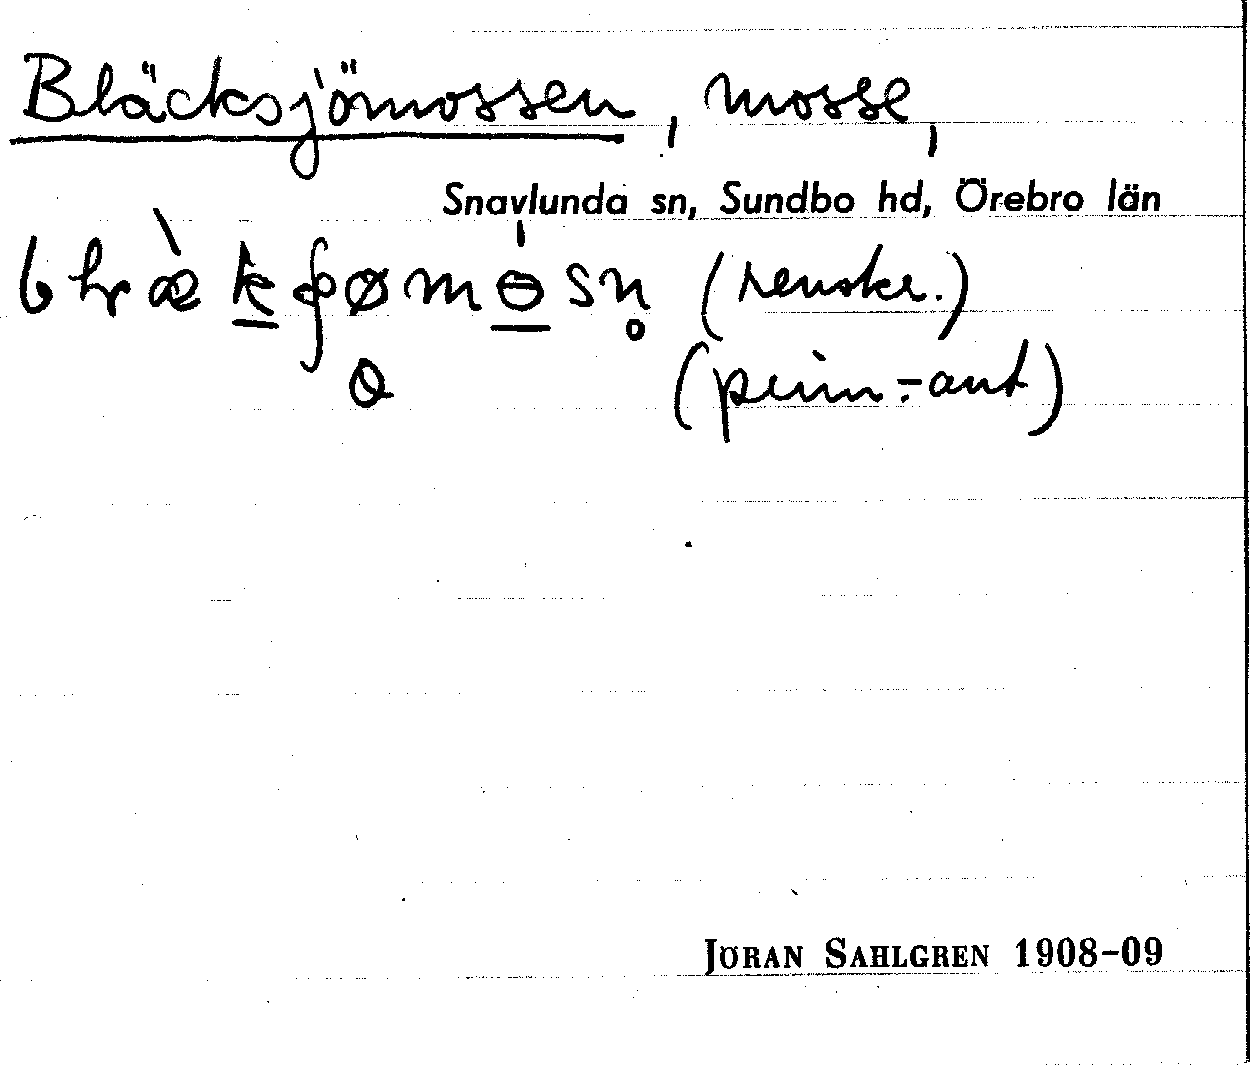 Bläcksjömossen, mosse,
Snavlunda sn, Sundbo hd, Örebro län
(renskr.)
(prim.-ant)
JÖRAN SAHLGREN 1908–09